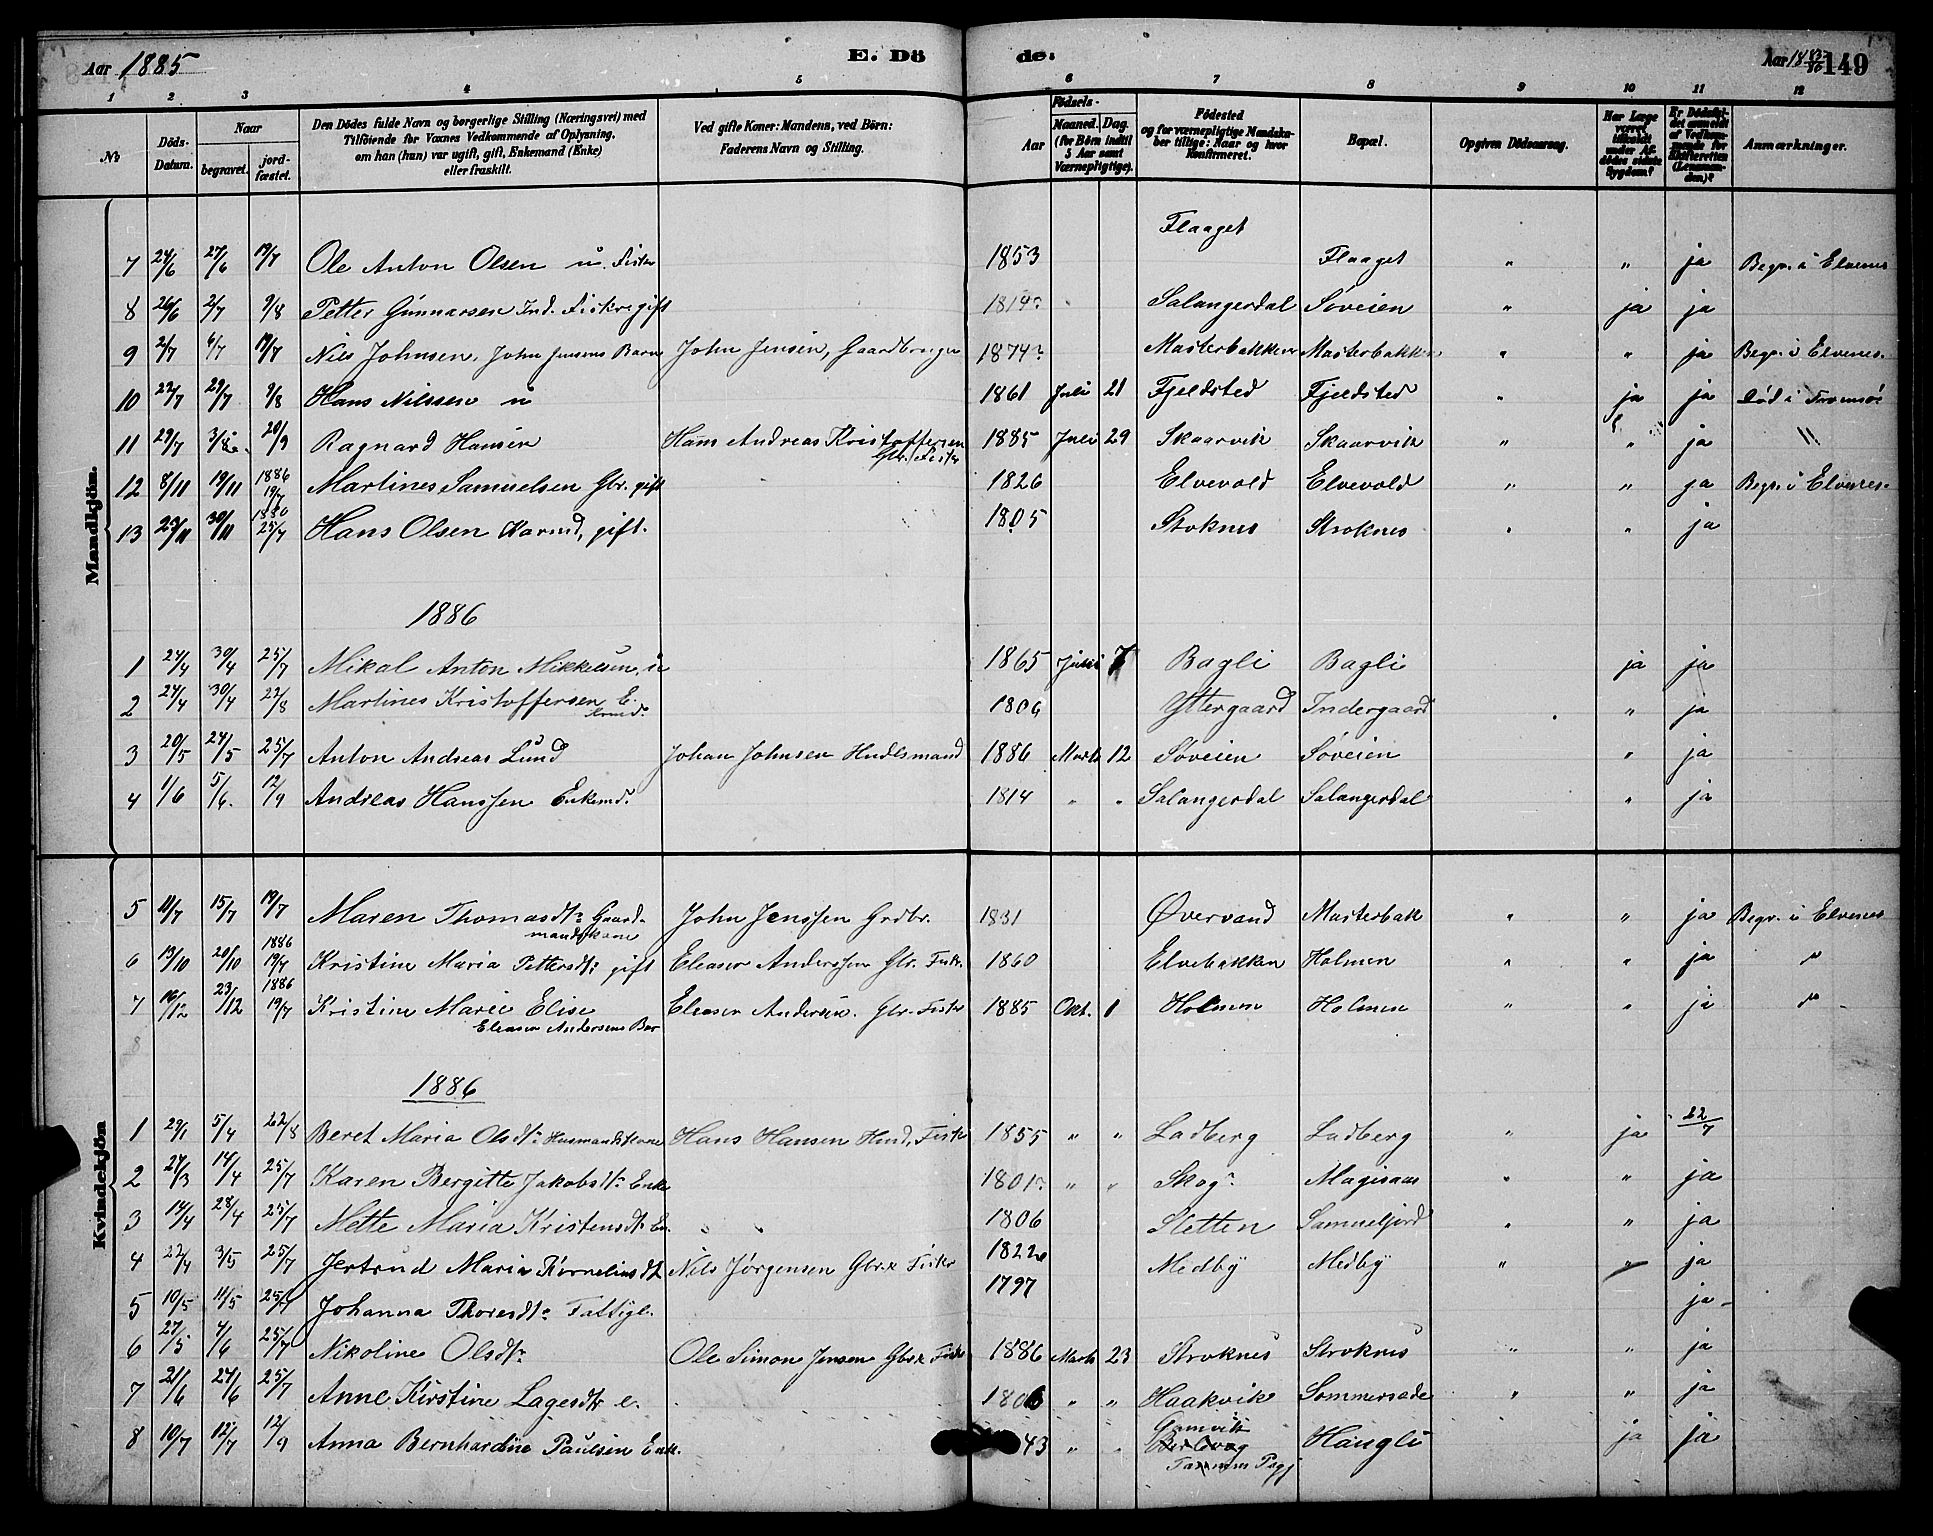 Aar 1885
E. Dö
de.
Aar 18 85/86 149
1 2 3 4 5 6 7 8 9 10 11 12
No
Döds-Datum.
Naar
begravet.
jord-fæstet.
Den Dödes fulde Navn og borgerlige Stilling (Næringsvei) med
Tilföiende for Voxnes Vedkommende af Oplysning,
om han (hun) var ugift, gift, Enkemand (Enke)
eller fraskilt.
Ved gifte Koner: Mandens, ved Börn:
Faderens Navn og Stilling.
Födsels-
Aar
Maaned. Dag.
(for Börn indtil
5 Aar samt
Værnepligtige).
Födested
og for værnepligtige Mandska-
ber tillige: Naar og hvor
Konfirmeret.
Bopæl.
Opgiven Dödsaarsag.
Har Læge
været
tilkaldt
under Af-
dödes sidste
Sygdom?
Er Dödsfal-
det anmeldt
af Vedkom-
mende for
Skifteretten
(Lensman-
den)?
Anmærkninger.
Mandkjön.
Flaaget
7 24/6 27/6 19/7 Ole Anton Olsen u. Fisker 1853 Flaaget " " ja Begr. i Elvenes
8 26/6 2/7 9/8 Petter Gunnarsen Ind. Fisker gift 1814? Salangerdal Søveien " ja ja
9 2/7 6/7 19/7 Nils Johnsen, John Jensens Barn John Jensen, Gaardbruger 1874? Masterbakken Masterbakken " " ja Begr. i Elvenes.
10 22/7 29/7 9/8 Hans Nilssen u 1861 Juli 21 Fjeldsted Fjeldsted " ja ja Død i Tromsö
11 29/7 3/8 20/9 Ragnard Hansen Hans Andreas Kristoffersen Gbr. Fisker 1885 Juli 29 Skaarvik Skaarvik " " ja "
12 8/11 19/11 1886 19/7 Martines Samuelsen Gbr. gift 1826 Elvevold Elvevold " " ja Begr. i Elvenes.
13 23/11 30/11 1886 25/7 Hans Olsen Kaarmd, gift. 1805 Stoknes Stroknes " " ja
1886
1 24/4 30/4 25/7 Mikal Anton Mikkelsen, u 1865 Juni 7 Bagli Bagli ja ja
2 24/4 30/4 22/8 Martines Kristoffersen E. 1806 Yttergaard Indergaard " ja
3 20/5 24/5 25/7 Anton Andreas Lund Johan Johnsen Hudlsmand 1886 Marts 12 Søveien Søveien " ja
4 1/6 5/6. 12/9 Andreas Hanssen Enkemd. 1814 " " Salangerdal Salangerdal " ja
Kvindekjön
5 11/7 15/7 19/7 Maren Thomasdtr Gaardmandskone John Jenssen Grdbr. 1831 Øvervand Masterbak " " ja Begr. i Elvenes
6 13/10 20/10 1886 19/7 Kristine Maria Pettersdtr gift Eleaser Anderssen Gbr. Fisk. 1860 Elvebakken Holmen " " ja "
7 16/12 23/12 1886 19/7 Kristine Marie Elise Eleaser Andersens Bar Eleaser Andersen. Gbr. Fisker 1885 Okt. 1 Holmen Holmen " " ja "
8
1886
1 29/1 5/4 22/8 Beret Maria Olsdtr Husmandskone Hans Hansen Hmd, Fisker 1855 " " Ladberg Ladberg " ja 22/7
2 27/3 14/4 25/7 Karen Bergitte Jakobsdtr Enke 1801? " " Skog? Magisaas " " ja
3 14/4 28/4 25/7 Mette Maria Kristensdtr En. " " 1806 Sletten Samueljord " " ja
4 22/4 3/5 25/7 Jertrud Maria Kornelius dtr Nils Jørgensen Gbr. Fisker 1822 Medby Medby " " ja
5 10/5 11/5 25/7 Johanna Thoresdtr Fattigl. 1797 ja
6 27/5 4/6 25/7 Nikoline Olsdtr Ole Simon Jensen Gbr. Fisker 1886 Marts 23 Stroknes Stroknes " " ja
7 21/6 24/6 25/7 Anne Kirstine Lagesdtr e. 1806 " " Haakvik Sommersæde " " ja
8 10/7 12/7 12/9 Anna Bernhardine Paulsen Enk. 43 " " Gamvik Haugli ja ja